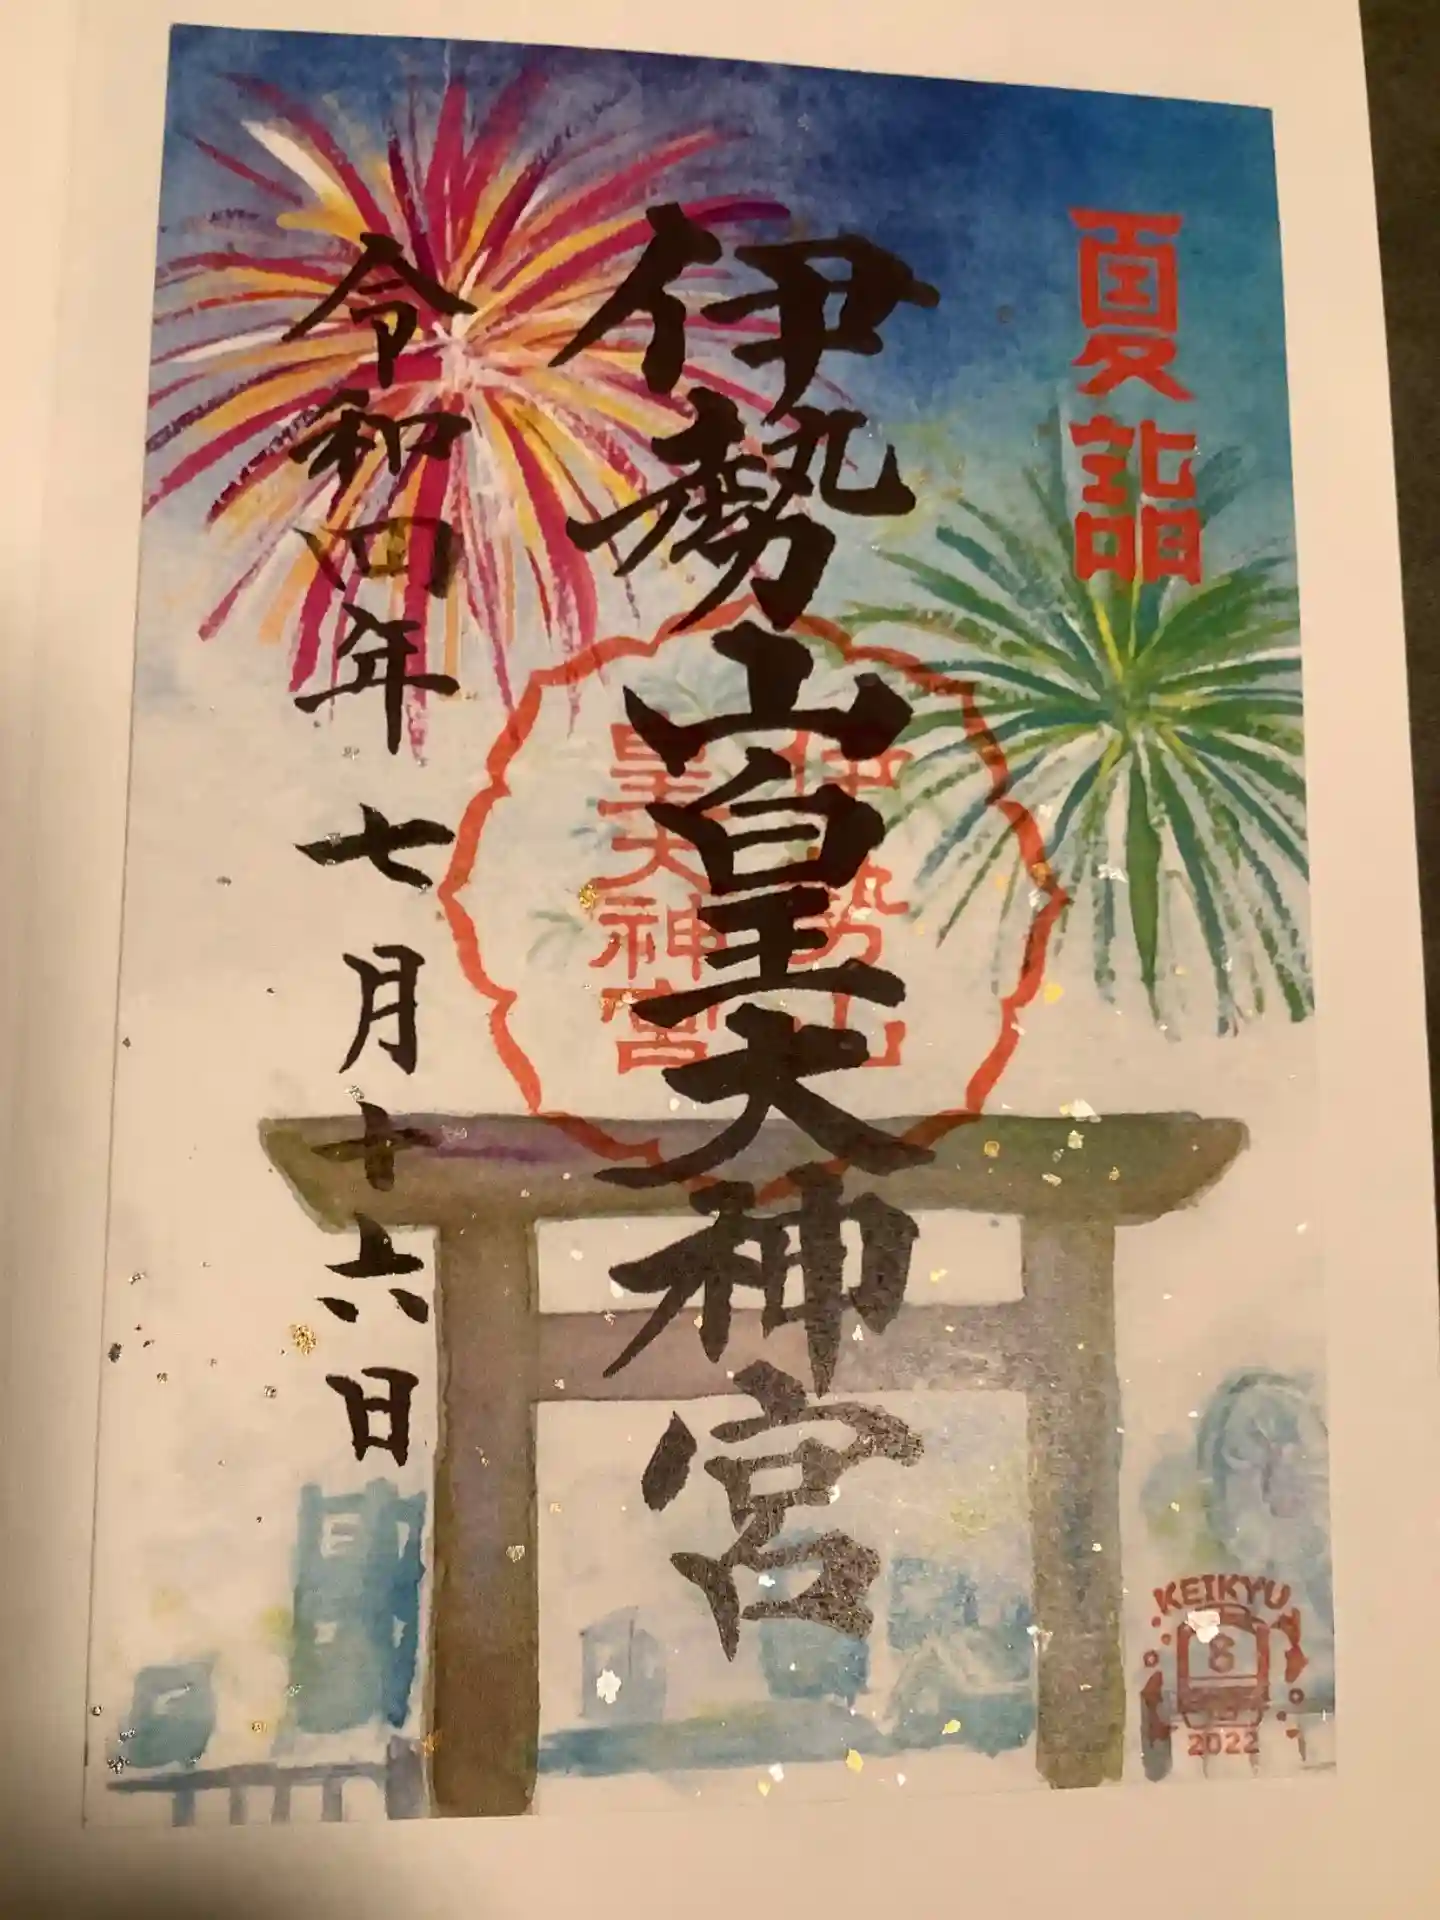 夏詣
伊勢山皇大神宮
伊勢山
皇大神宮
令和四年 七月十六日
KEIKYU
8
2022